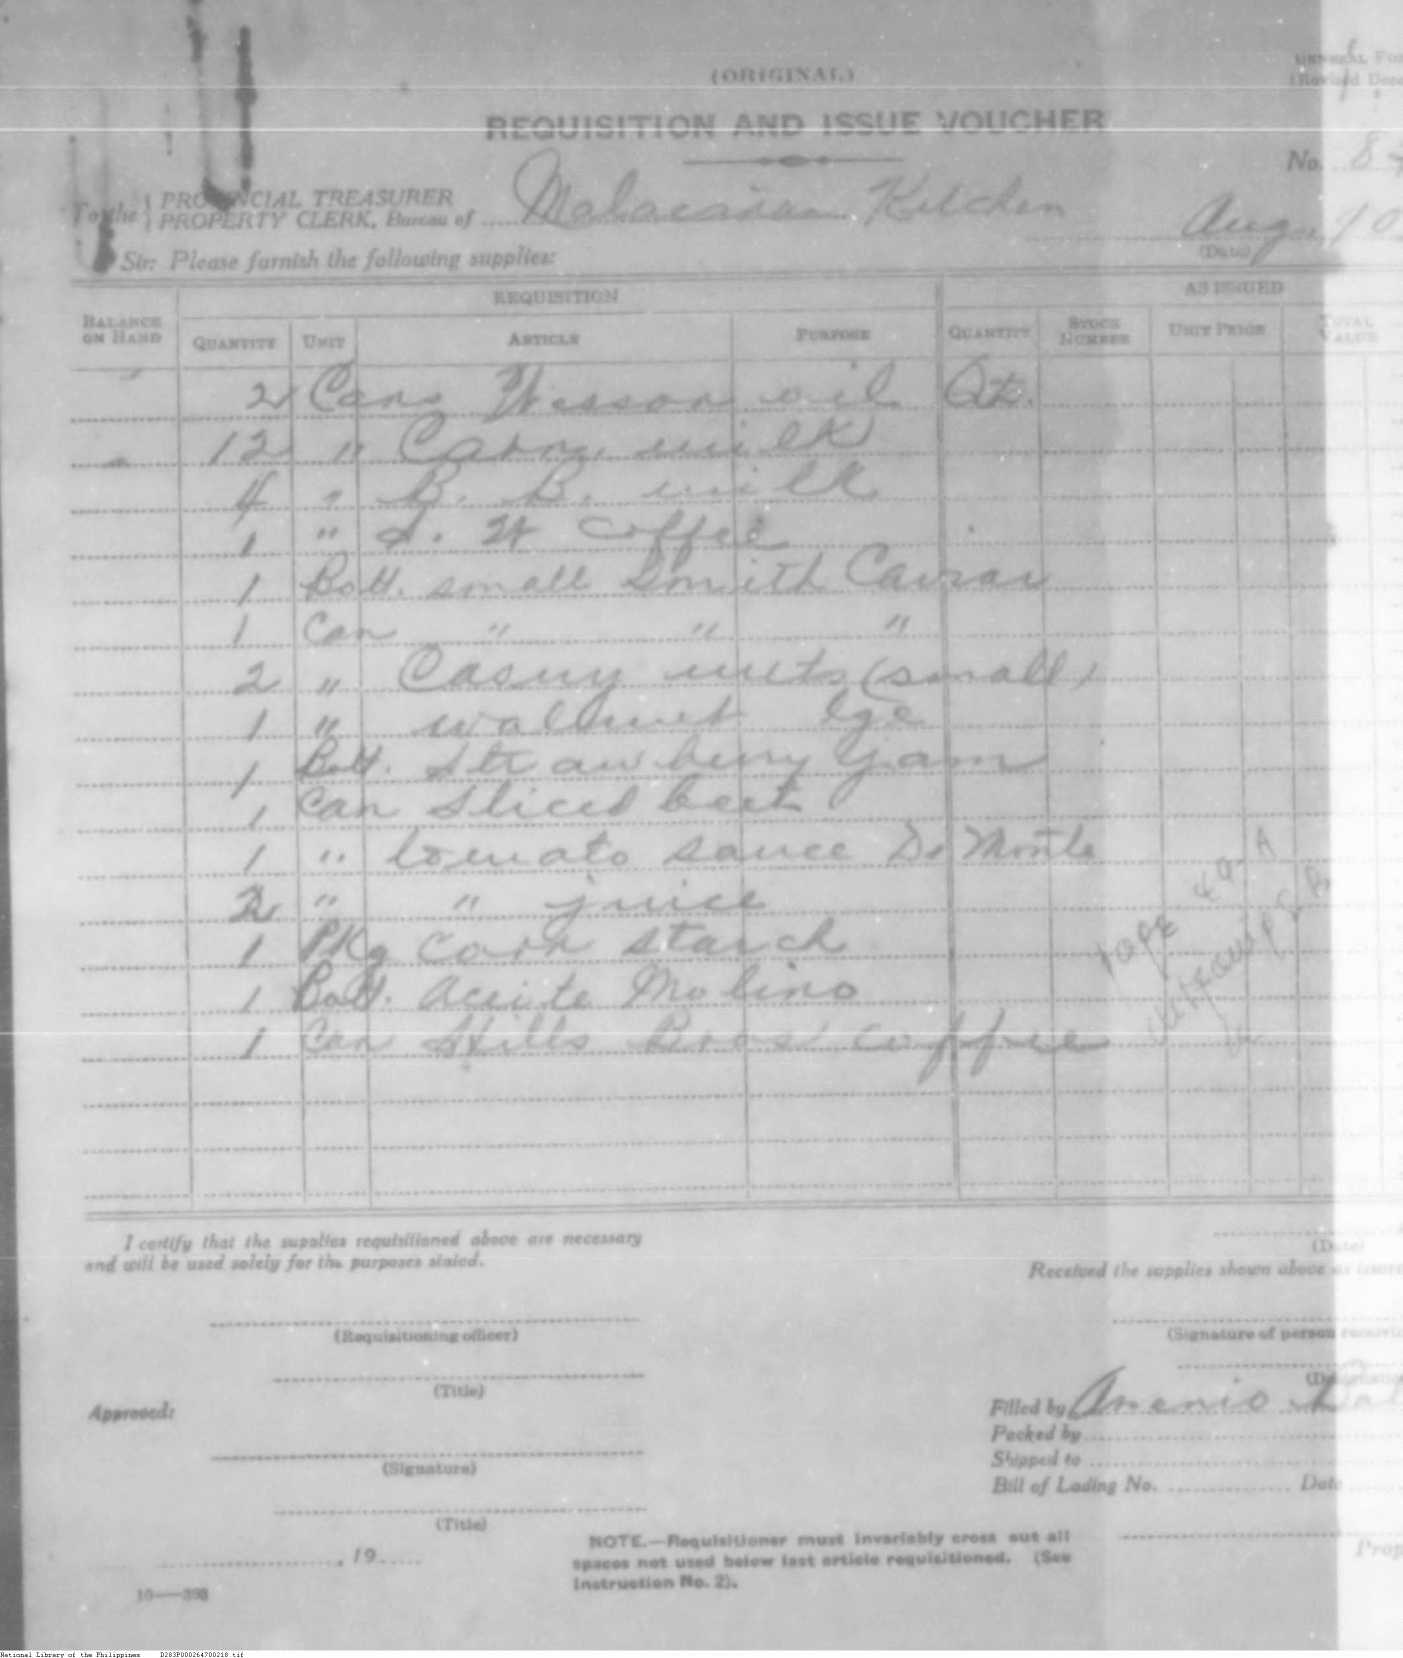 (ORIGINAL)
GENERAL
(Revised
REQUISITION AND ISSUE VOUCHER
No. 8
To the PROVINCIAL TREASURER
PROPERTY CLERK, Bureau of Malacañan Kitchen
Aug. 10
(Date)
Sir: Please furnish the following supplies:
REQUISITION AS ISSUED
BALANCE ON HAND QUANTITY UNIT ARTICLE PURPOSE QUANTITY STOCK NUMBER UNIT PRICE TOTAL VALUE
2 Cans Wesson oil Qts.
12 " Carn. milk
4 " B. B. milk
1 " S. W coffee
1 Bott. small Smith Caviar
1 Can " " "
2 " Casuy nuts (small)
1 " walnut lge
1 Bott. Strawberry Jam
1 Can Sliced beet
1 " tomato sauce De Monte
2 " " juice
1 Pkg corn starch
1 Bott. Aceite Molino
1 Can Hills Bros' coffee
I certify that the supplies requisitioned above are necessary
and will be used solely for the purposes stated.
(Date)
Received the supplies shown above as
(Requisitioning officer)
(Signature of person
(Title)
Approved:
Filled by
Packed by
(Signature)
Shipped to
Bill of Lading No. Date
(Title)
, 19
NOTE.—Requisitioner must invariably cross out all
spaces not used below last article requisitioned. (See
Instruction No. 2).
Prop
National Library of the Philippines D283P000264700218.tif